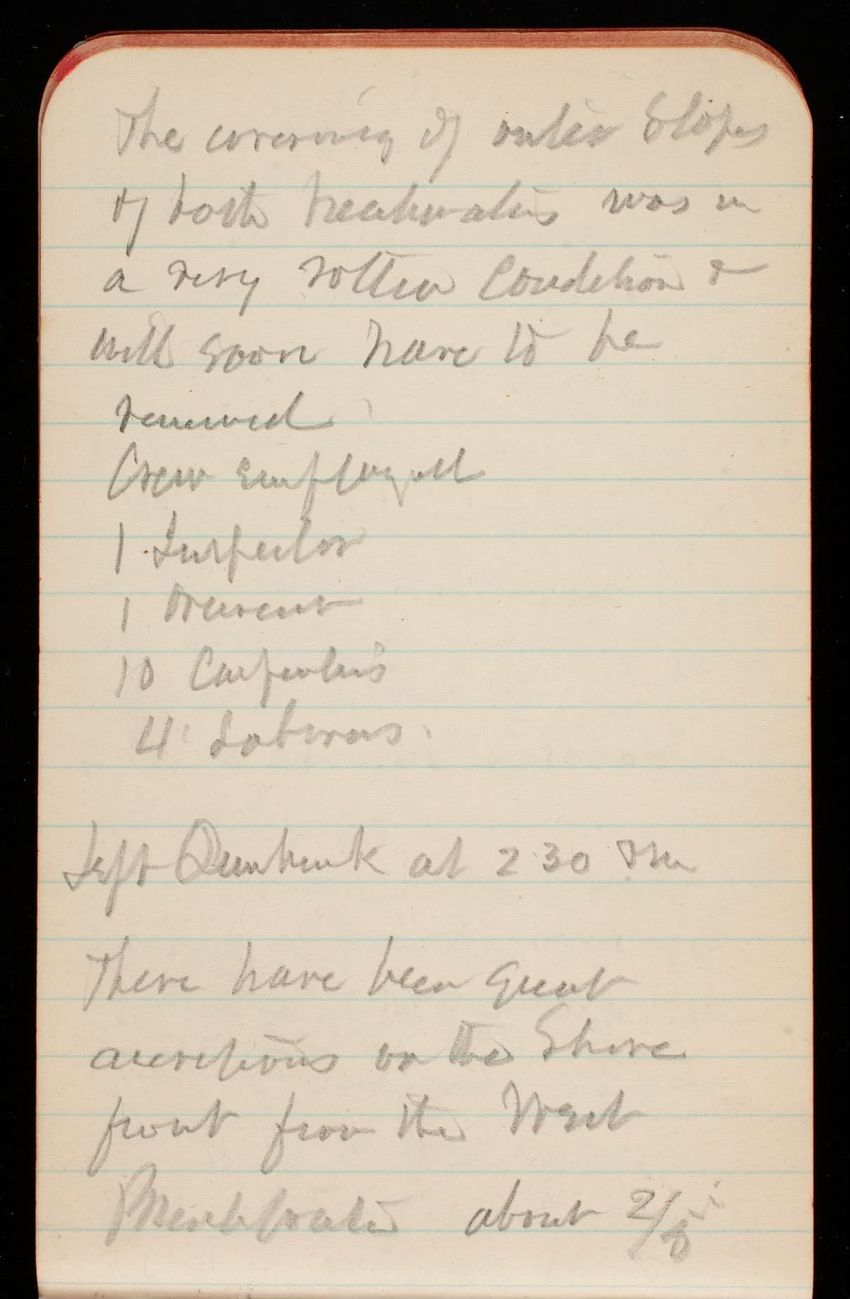 The covering of outer Slopes
of both breakwaters was in
a very rotten Condition &
will soon have to be
renewed
Crew employed
1 Inspector
1
10 Carpenters
4 Laborers.
Left at 2 30 PM
There have been great
accretions on the Shore
front from the West
Breakwater about 2/